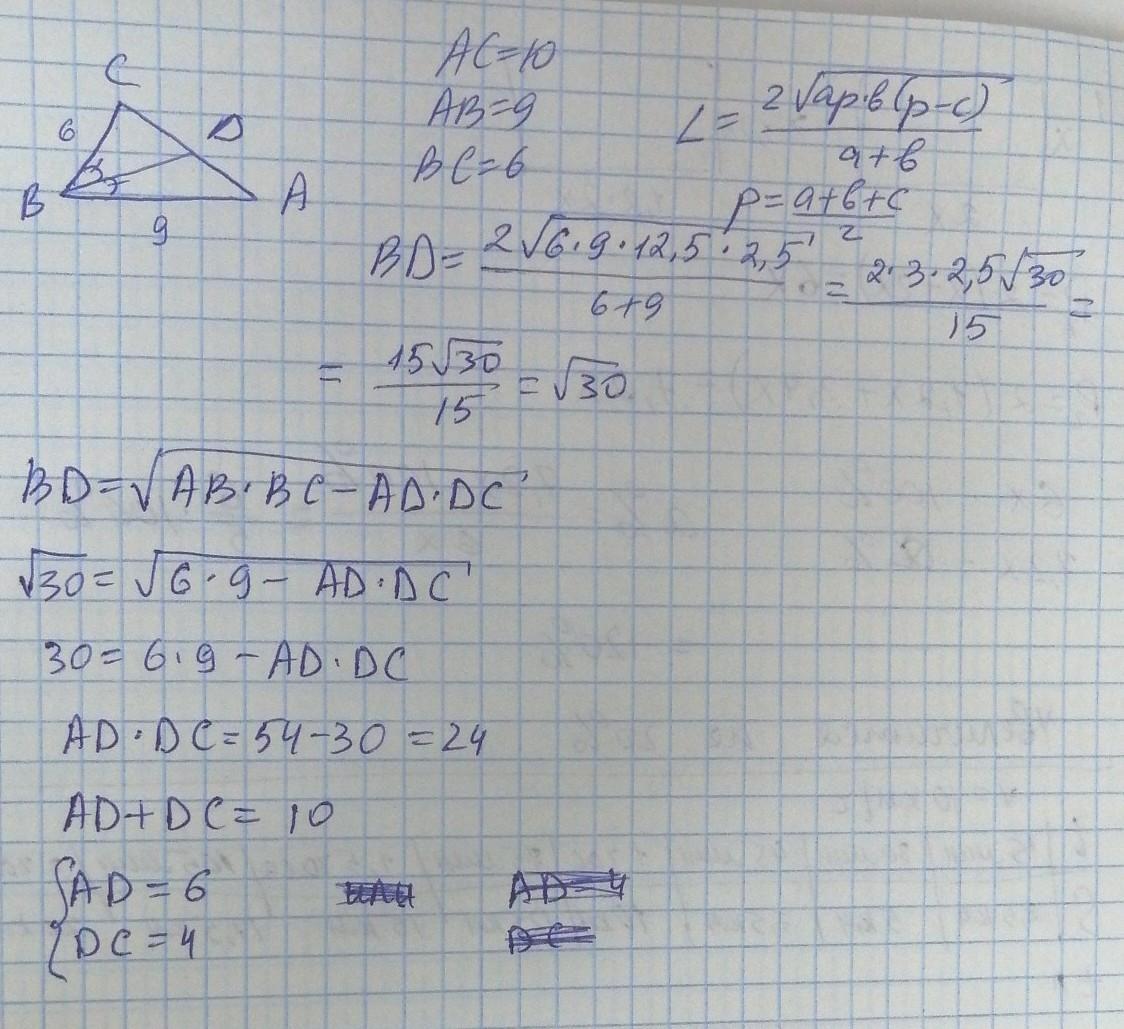 C
6
D
B
A
9
AC=10
AB=9
BC=6
L = 2√ap·в(p-c) / a+в
p = a+в+c / 2
BD = 2√6·9·12,5·2,5 / 6+9 = 2·3·2,5√30 / 15 =
= 15√30 / 15 = √30
BD=√AB·BC-AD·DC
√30 = √6·9- AD·DC
30= 6·9-AD·DC
AD·DC=54-30=24
AD+DC= 10
{AD = 6
{DC=4